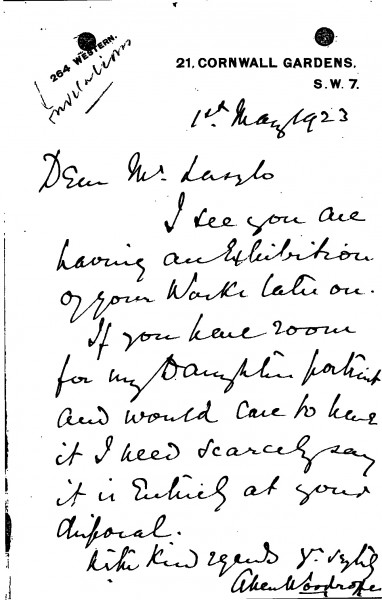 264 WESTERN.
Invitations
21, CORNWALL GARDENS.
S.W. 7.
1st May 1923
Dear Mr. Laszlo
I see you are
having an Exhibition
of your Works later on.
If you have room
for my Daughters portrait
and would care to have
it I need scarcely say
it is Entirely at your
disposal.
With Kind regards Yr.
Woodrope